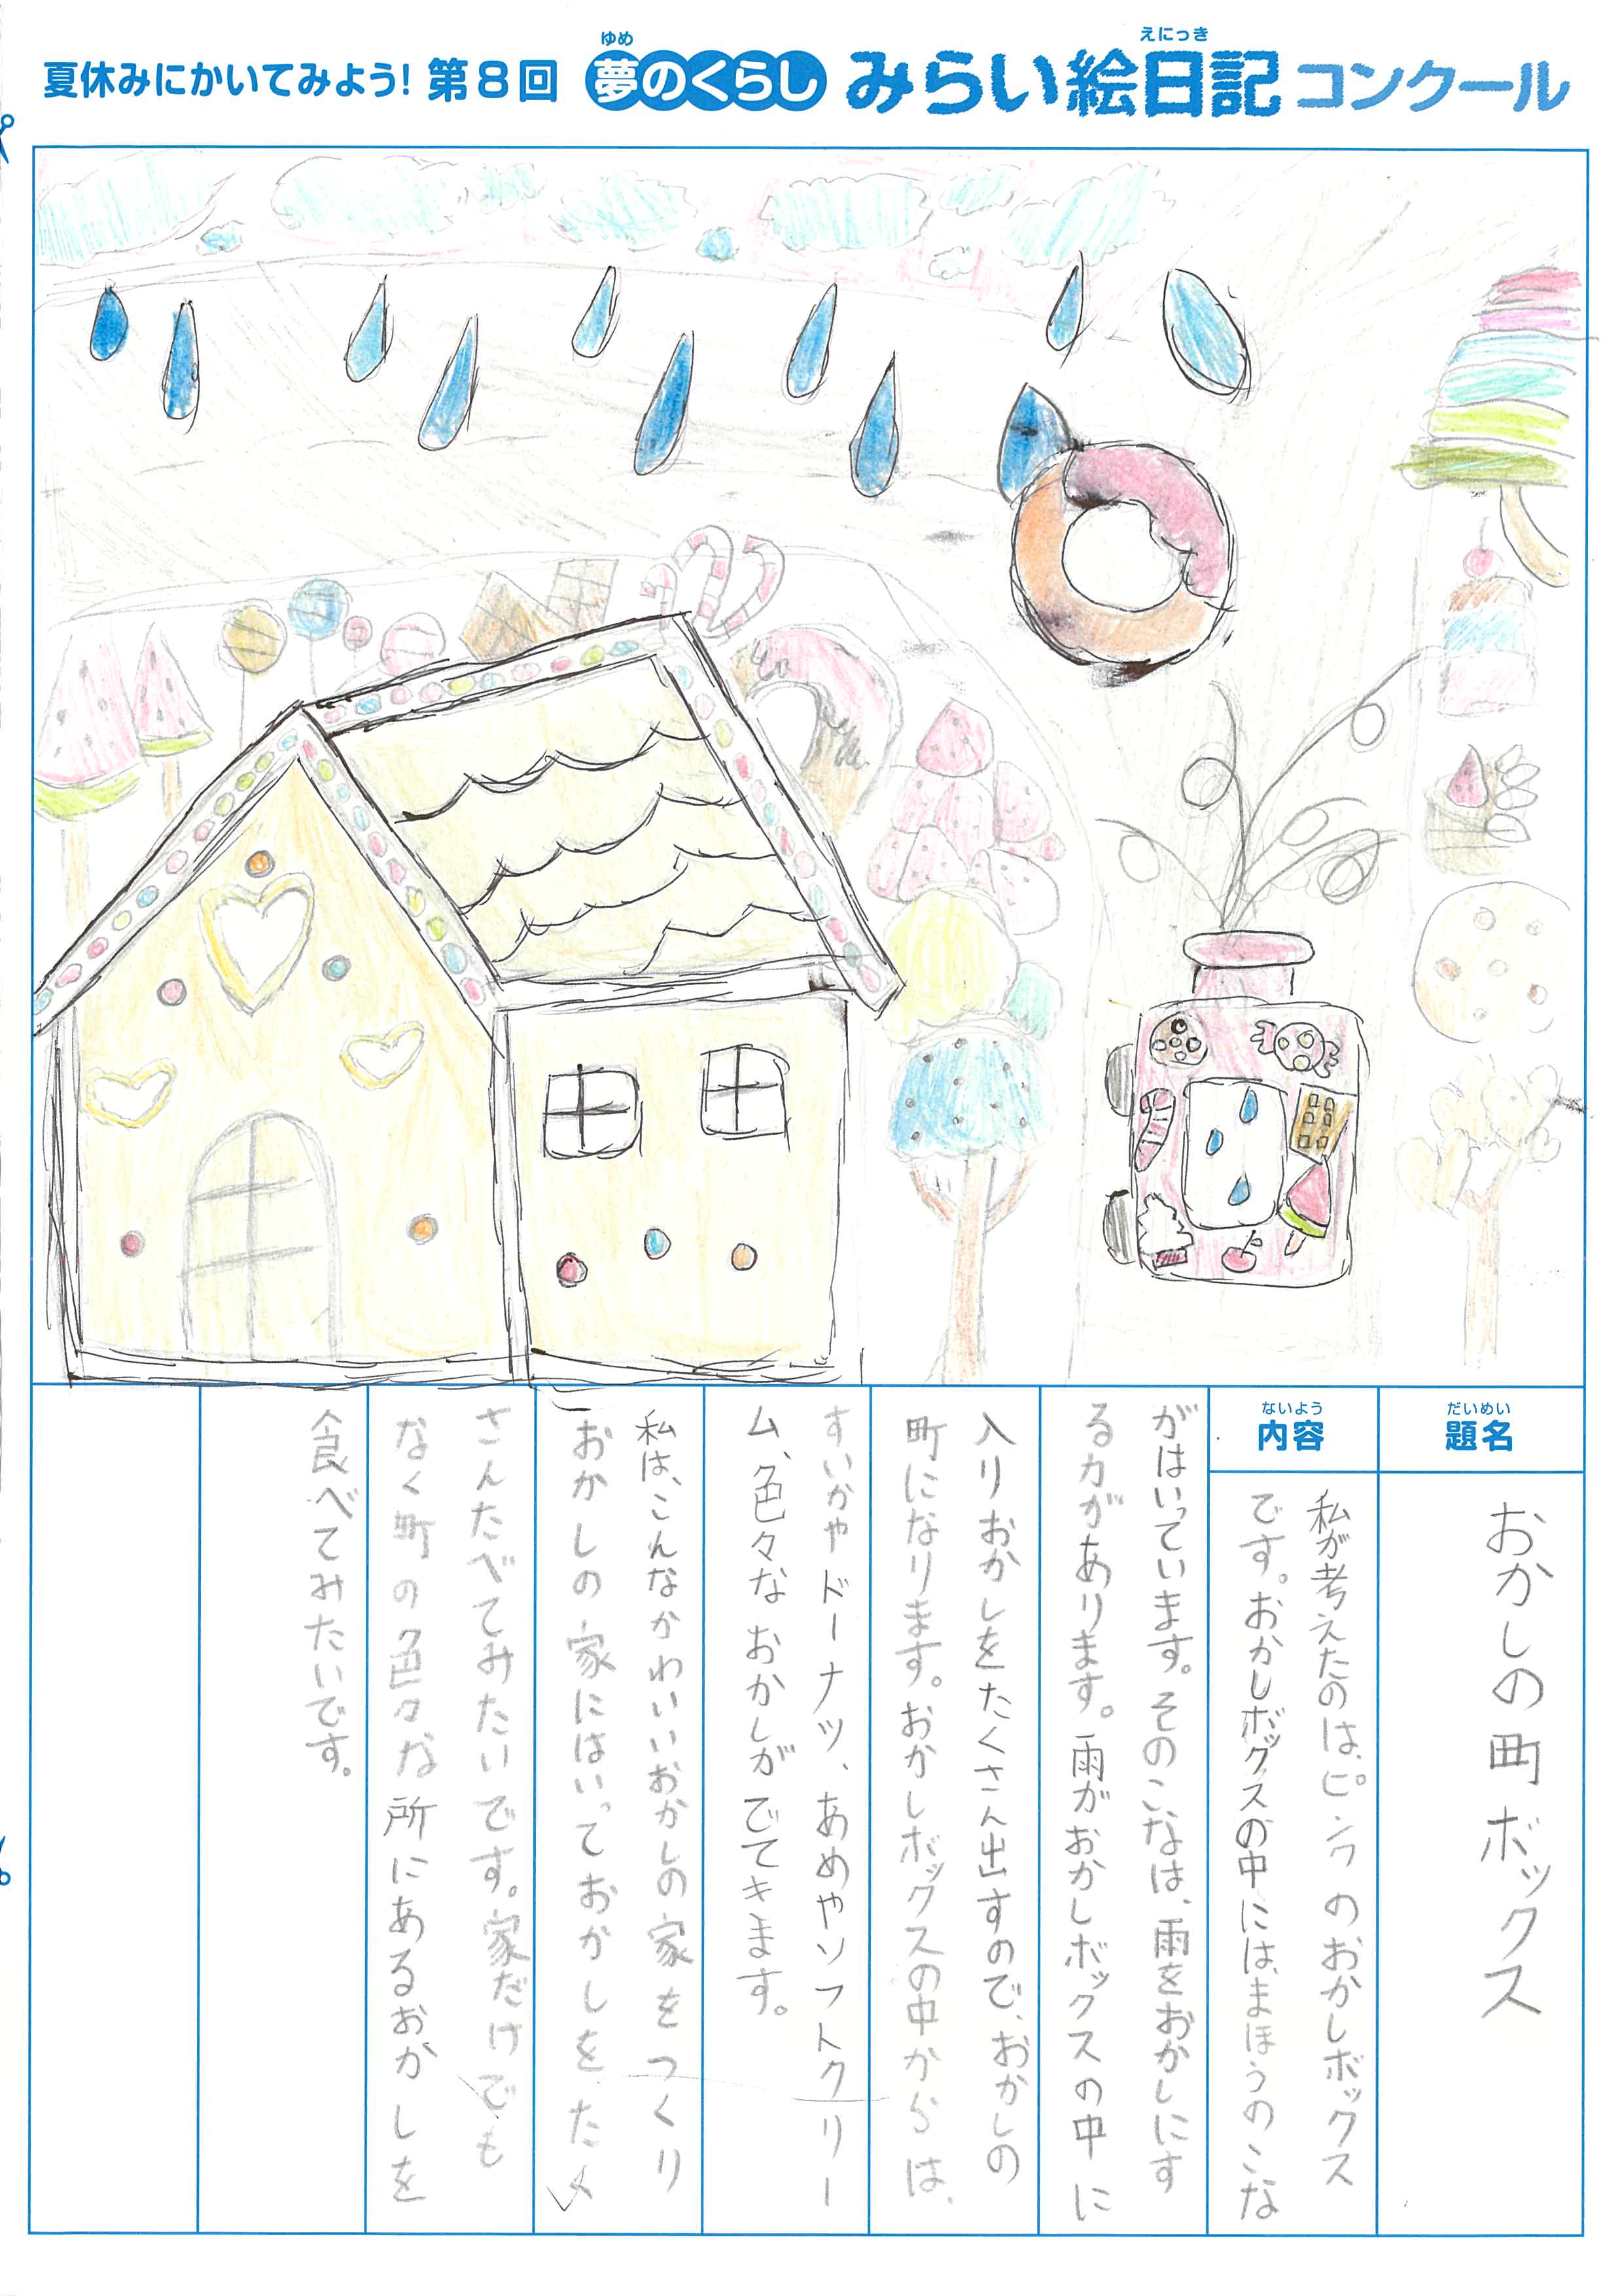 夏休みにかいてみよう！第８回 夢のくらし みらい絵日記コンクール
ゆめ
えにっき
だいめい
題名
おかしの町ボックス
ないよう
内容
私が考えたのは、ピンクのおかしボックス
です。おかしボックスの中には、まほうのこな
がはいっています。そのこなは、雨をおかしにす
る力があります。雨がおかしボックスの中に
入りおかしをたくさん出すので、おかしの
町になります。おかしボックスの中からは、
すいかやドーナツ、あめやソフトクリー
ム、色々なおかしがでてきます。
私は、こんなかわいいおかしの家をつくり
おかしの家にはいっておかしをたく
さんたべてみたいです。家だけでも
なく町の色々な所にあるおかしを
食べてみたいです。